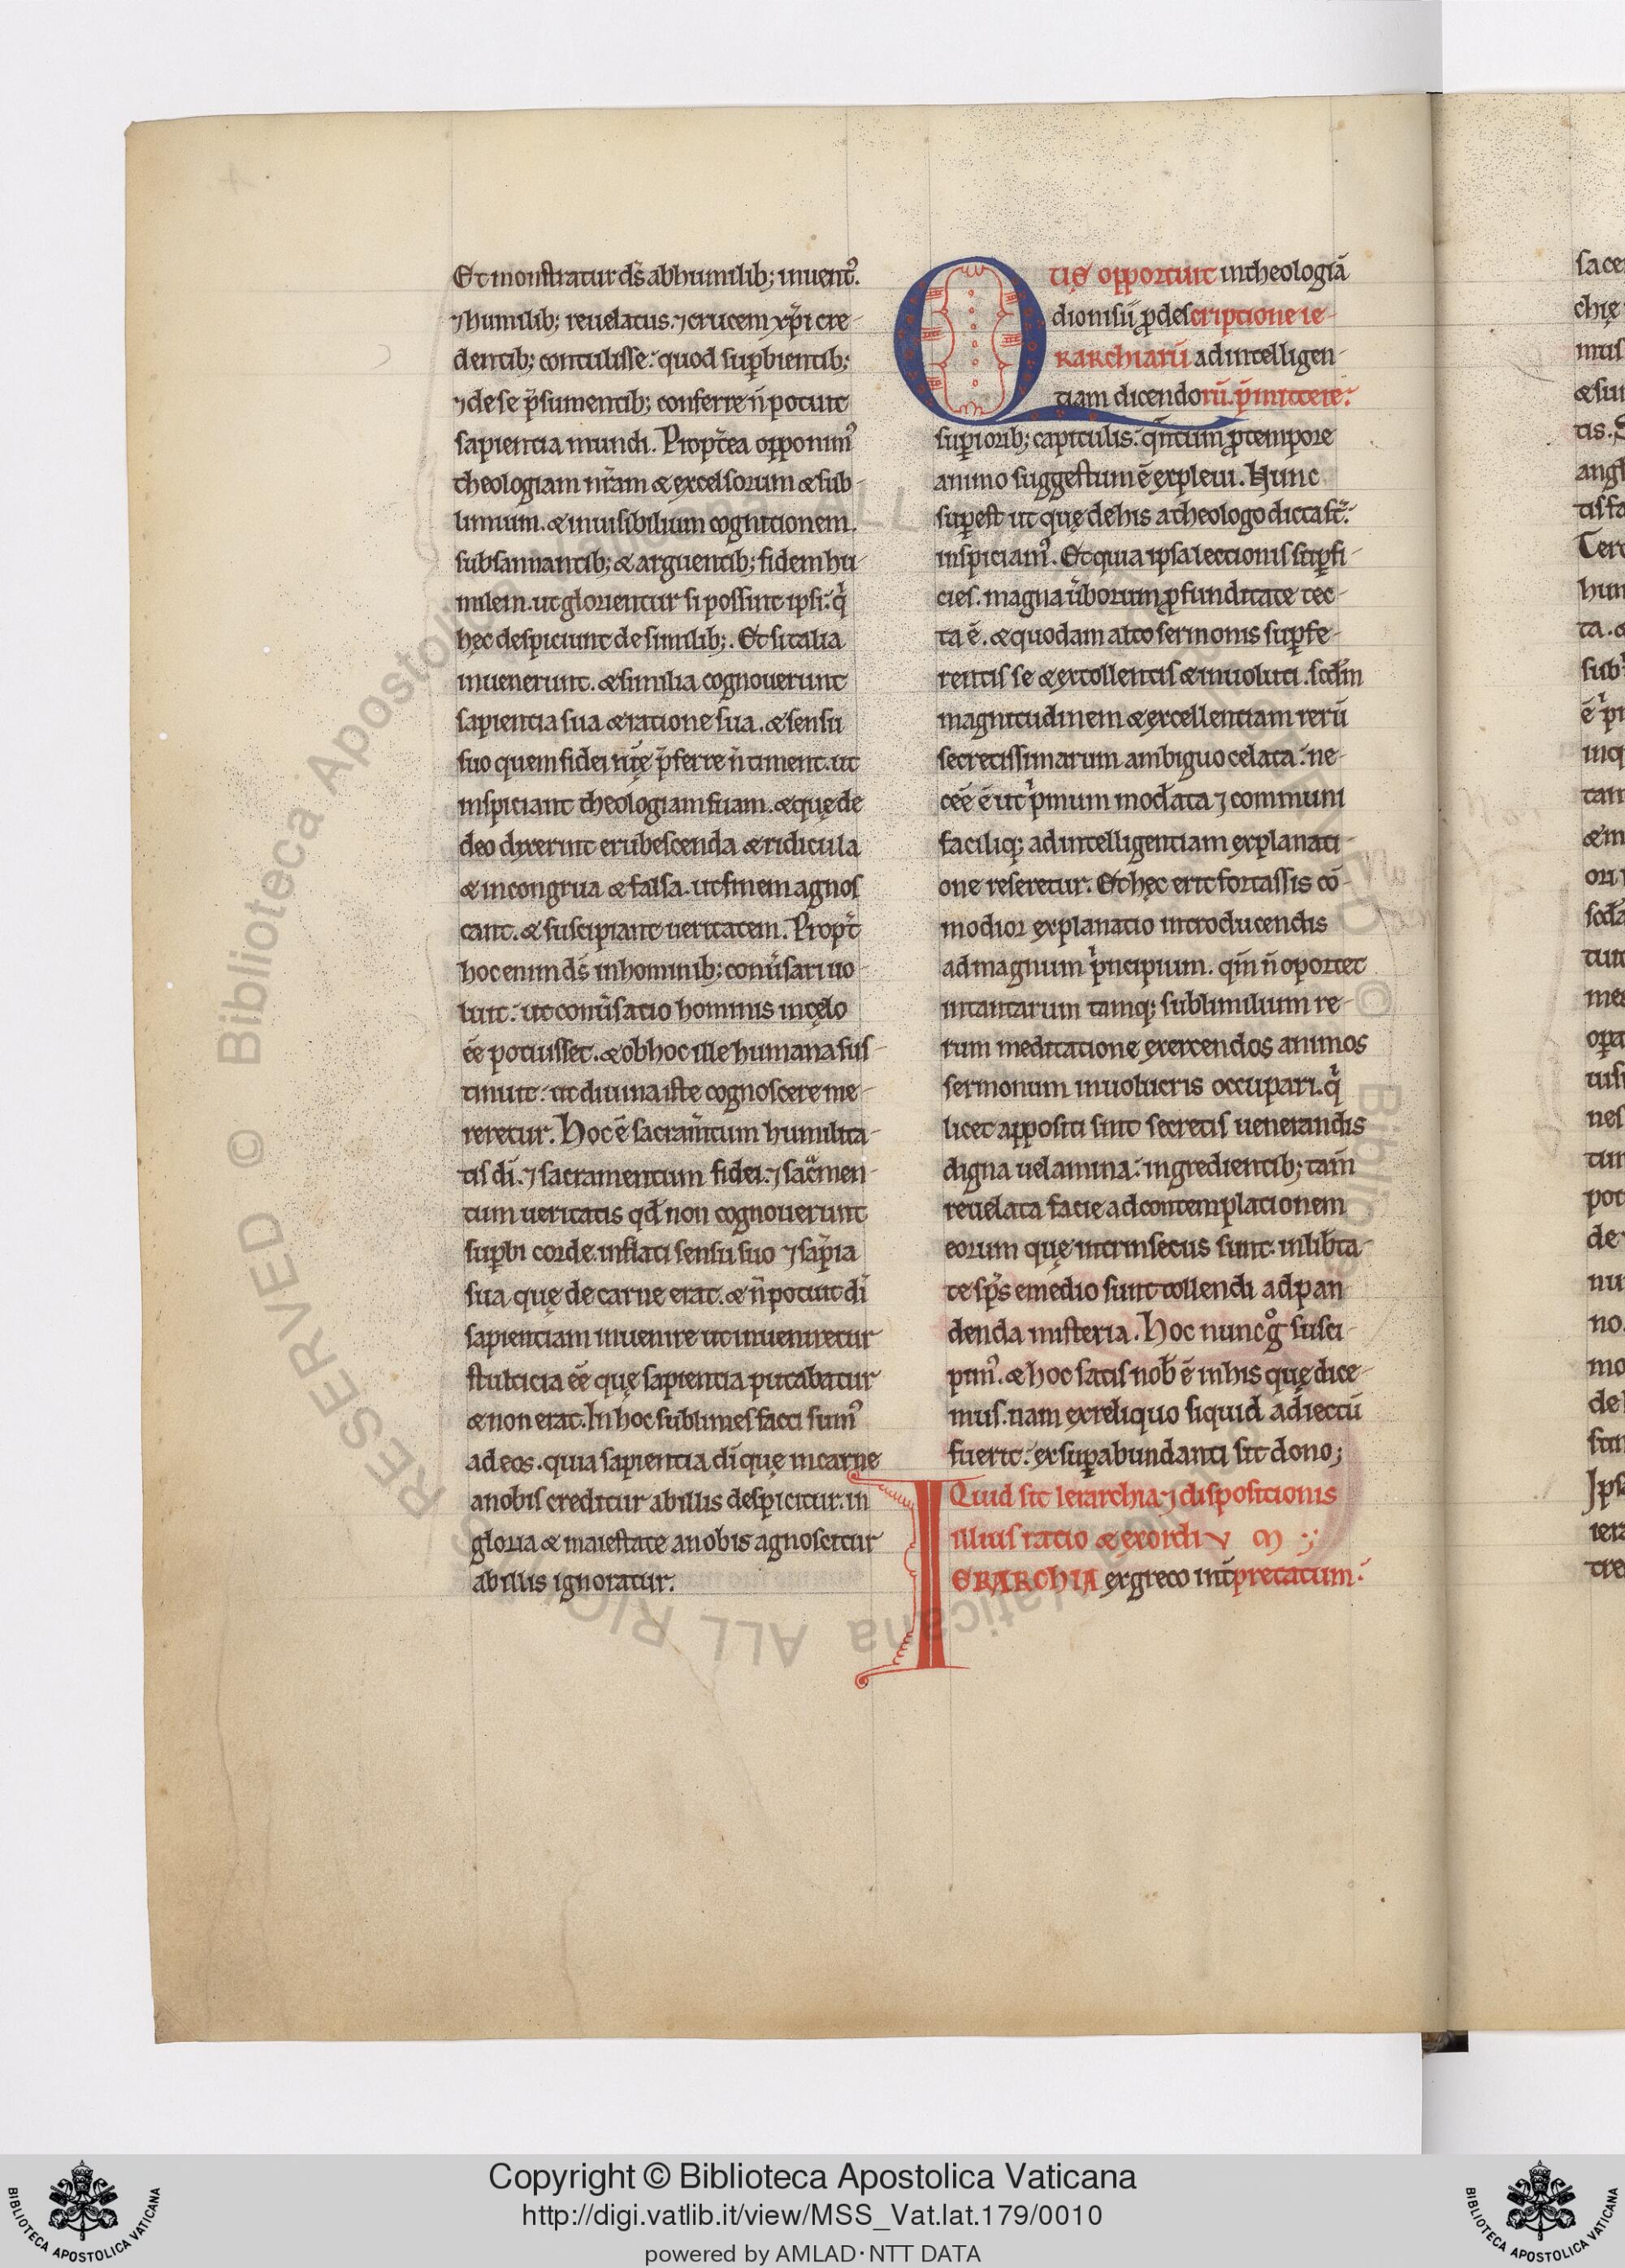 Et monstratur ds̄ ab humilib; inuentꝰ.
⁊ humilib; reuelatus. ⁊ crucem xp̄i cre-
dentib; contulisse: quod suꝑbientib;
⁊ de se p̄sumentib; conferre n̄ potuit
sapientia mundi. Propt̄ea opponimꝰ
theologiam nr̄am & excelsorum & sub-
limium. & inuisibilium cognitionem.
subsannantib; & arguentib; fidem hu-
milem. ut glorientur si possint ipsi: q̇
hęc despiciunt de similib;. Et si talia
inuenerunt. & similia cognouerunt
sapientia sua & ratione sua. & sensu
suo quem fidei nr̄ę p̄ferre n̄ timent. ut
inspiciant theologiam suam. & quę de
deo dixerint erubescenda & ridicula
& incongrua & falsa. ut finem agnos
cant. & suscipiant ueritatem. Propt̄
hoc enim ds̄ in hominib; conūsari uo-
luit: ut conūsatio hominis in cęlo
ēe potuisset. & ob hoc ille humana sus-
tinuit: ut diuina iste cognoscere me-
reretur. Hoc ē sacram̄tum humilita-
tis di. ⁊ sacramentum fidei. ⁊ sac̄men-
tum ueritatis qđ non cognouerunt
suꝑbi corde. inflati sensu suo ⁊ sap̄ia
sua quę de carne erat. & n̄ potuit di
sapientiam inuenire ut inueniretur
stulticia ēe quę sapientia putabatur
& non erat. In hoc sublimes facti sumꝰ
ad eos. quia sapientia di quę in carne
a nobis creditur ab illis despicitur. in
gloria & maiestate a nobis agnoscitur
ab illis ignoratur.
QUIE opportuit in theologiā
dionisii ꝓ descriptione ie-
RARchiarū ad intelligen-
tiam dicendorū. p̄mittere:
suꝑiorib; capitulis: q̄ntum ꝓ tempore
animo suggestum ē expleui. Hunc
suꝑest ut quę de his a theologo dicta st̄:
inspiciamꝰ. Et quia ipsa lectionis suꝑfi-
cies. magna ūborum ꝓfunditate tec-
ta ē. & quodam alto sermonis suꝑfe-
rentis se & extollentis & inuoluti. scđm
magnitudinem & excellentiam rerū
secretissimarum ambiguo celata: ne-
cēe ē ut ṗmum mod̄ata ⁊ communi
faciliq; ad intelligentiam explanati-
one reseretur. Et hęc erit fortassis cō-
modior explanatio introducendis
ad magnum ṗncipium. qm̄ n̄ oportet
in tantarum tamq; sublimium re-
rum meditatione exercendos animos
sermonum inuolucris occupari. q̇
licet appositi sint secretis uenerandis
digna uelamina: ingredientib; tam̄
reuelata facie ad contemplationem
eorum quę intrinsecus sunt: in lib̄ta-
te sp̄s e medio sunt tollendi ad pan
denda misteria. Hoc nunc g̊ susci-
pimꝰ. & hoc satis nob̄ ē in his quę dice-
mus. nam ex reliquo siquid adiectū
fuerit: ex suꝑabundanti sit dono;
Quid sit Ierarchia ⁊ dispositionis
illius ratio & exordiv m :;
IERARCHIA ex greco int̄pretatum: